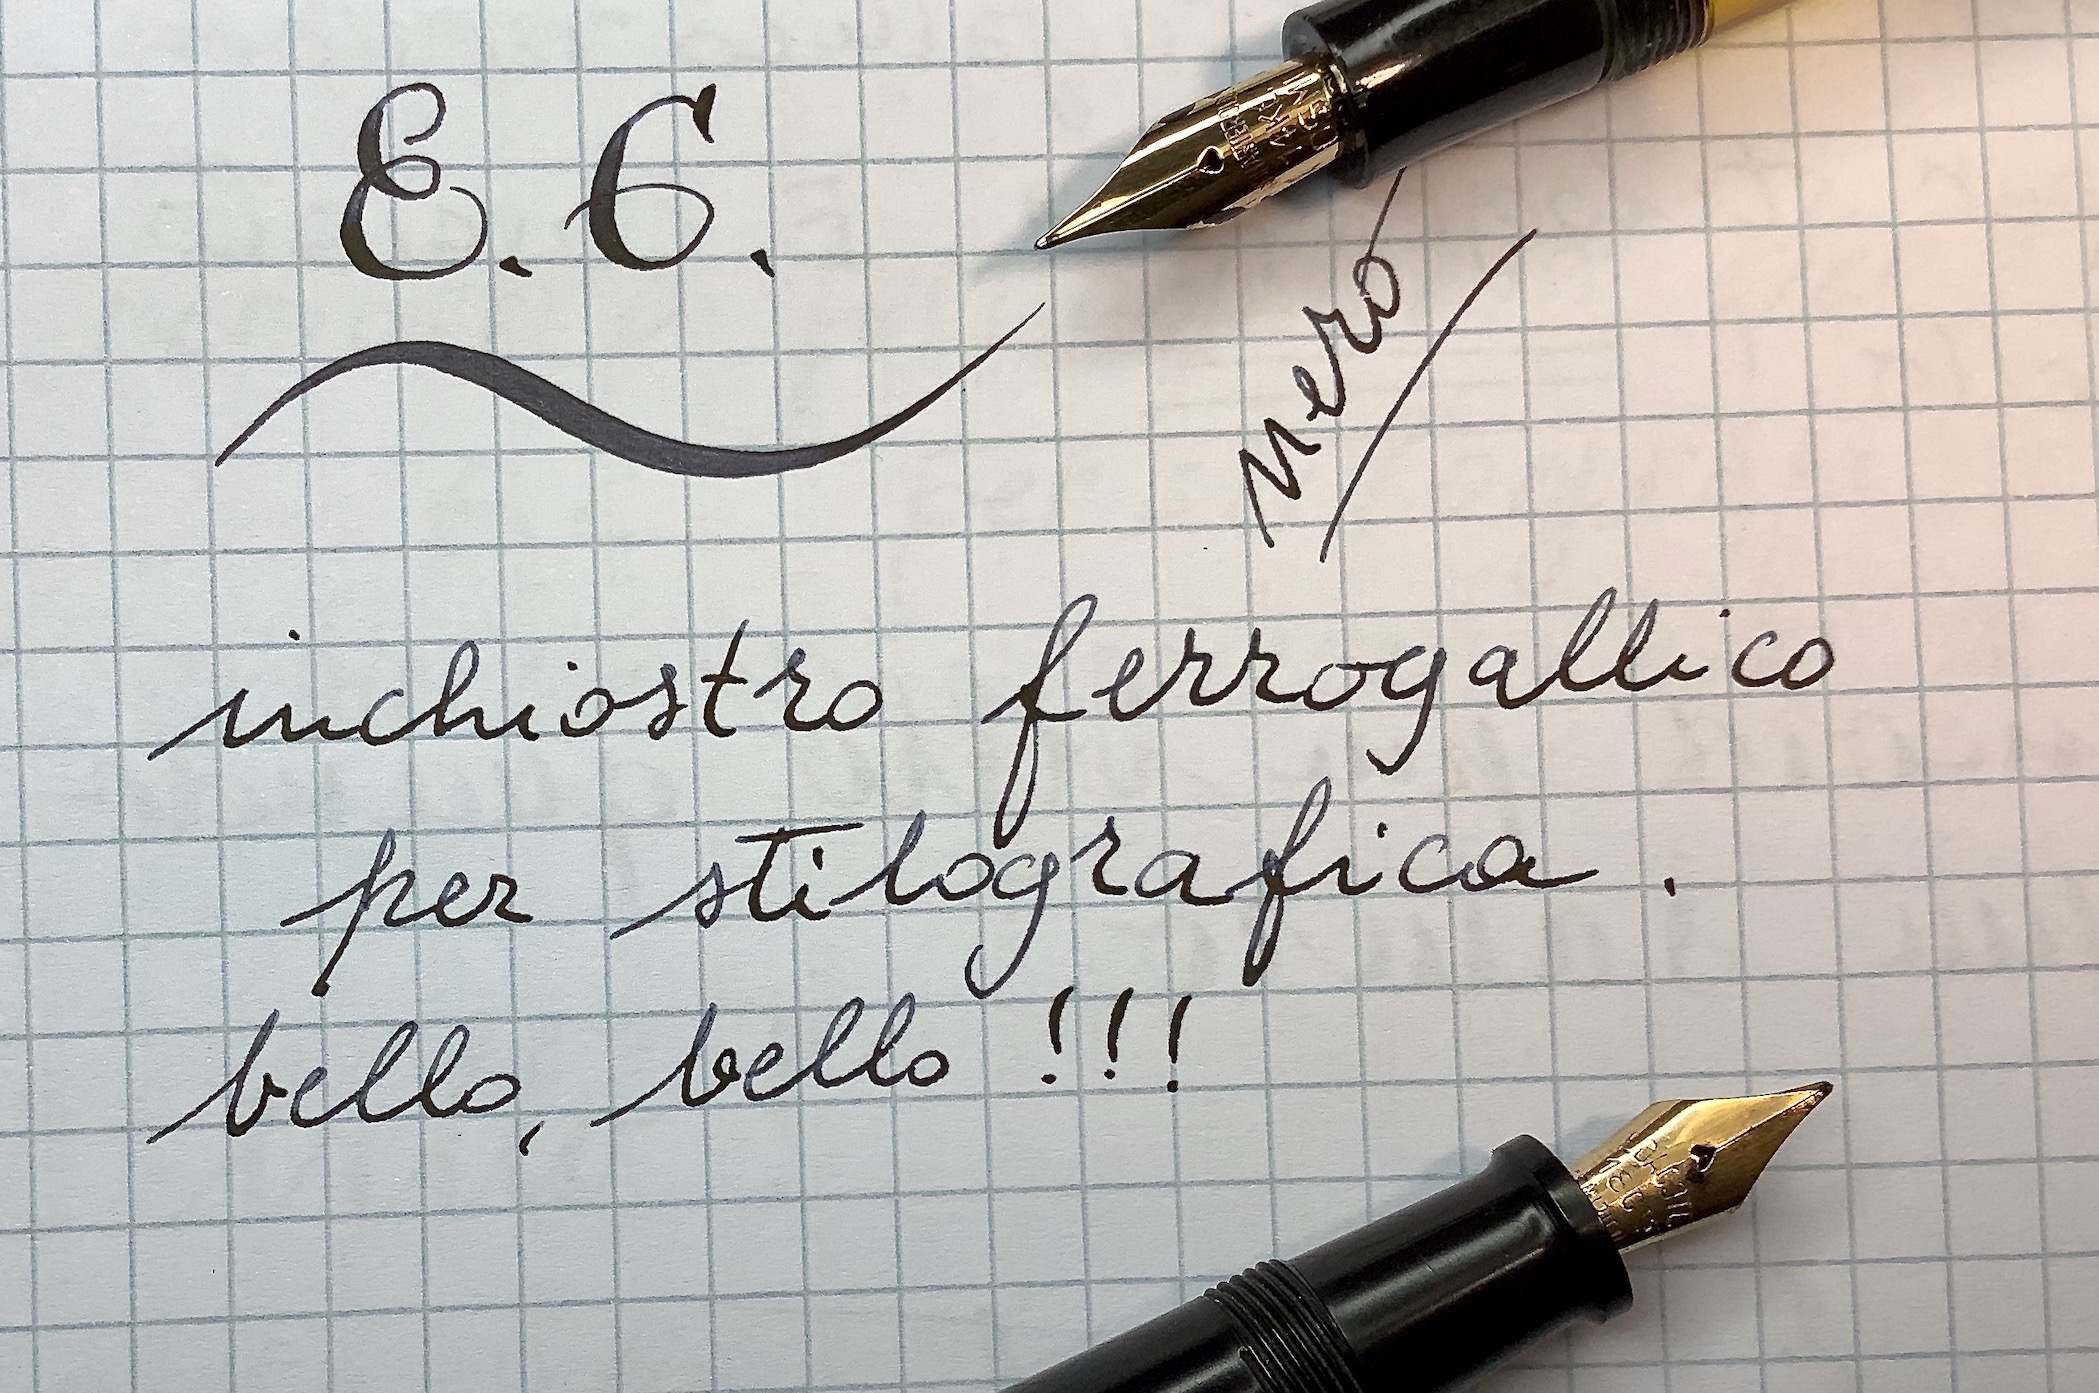 E. C.
nero
inchiostro ferrogallico
per stilografica.
bello, bello!!!